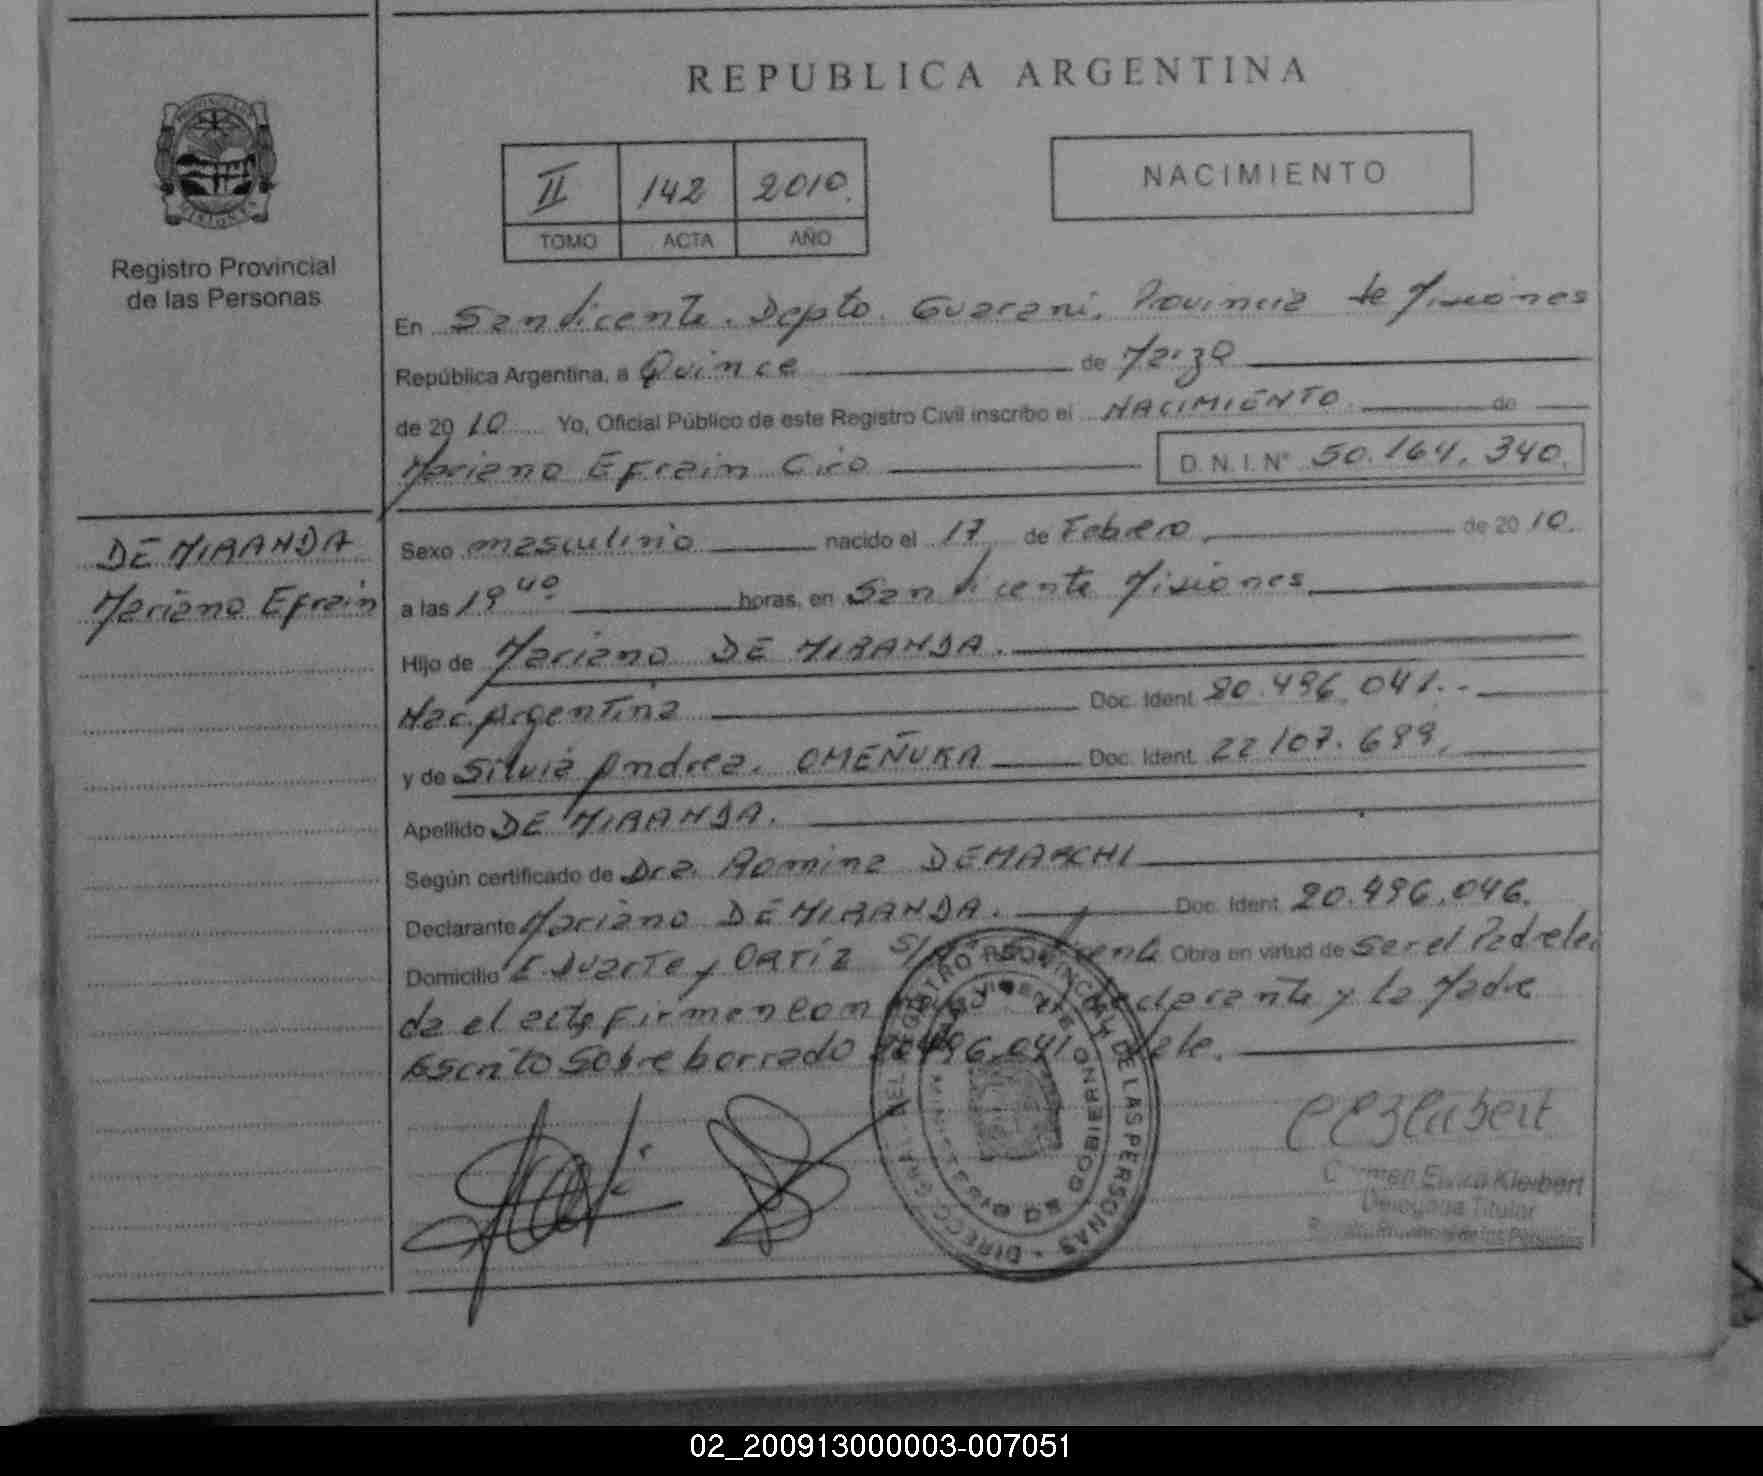 REPUBLICA ARGENTINA
II 142 2010.
TOMO ACTA AÑO
NACIMIENTO
Registro Provincial
de las Personas
En San Vicente. Depto. Guarani, Provincia de Misiones
República Argentina, a Quince de Marzo
de 2010 Yo, Oficial Público de este Registro Civil inscribo el NACIMIENTO de
Mariano Efrain Ciro D.N.I. N° 50.164.340.
DE MIRANDA
Mariano Efrain
Sexo masculino nacido el 17 de Febrero de 2010.
a las 19 40 horas, en San Vicente Misiones
Hijo de Mariano DE MIRANDA.
Nac. Argentina Doc. Ident. 20.496.041.-
y de Silvia Andrea. OMEÑUKA Doc. Ident. 22107.699.
Apellido DE MIRANDA.
Según certificado de Dra. Romina DEMARCHI
Declarante Mariano DE MIRANDA. Doc. Ident. 20.496.046.
Domicilio E. Duarte y Ortiz S/N Obra en virtud de ser el Padre lei
da el acta firman con declarante y la Madre
Escrito sobre borrado 20.496.041 Vale.
DE LAS PERSONAS
Carmen Kleibert
Delegada Titular
02_200913000003-007051